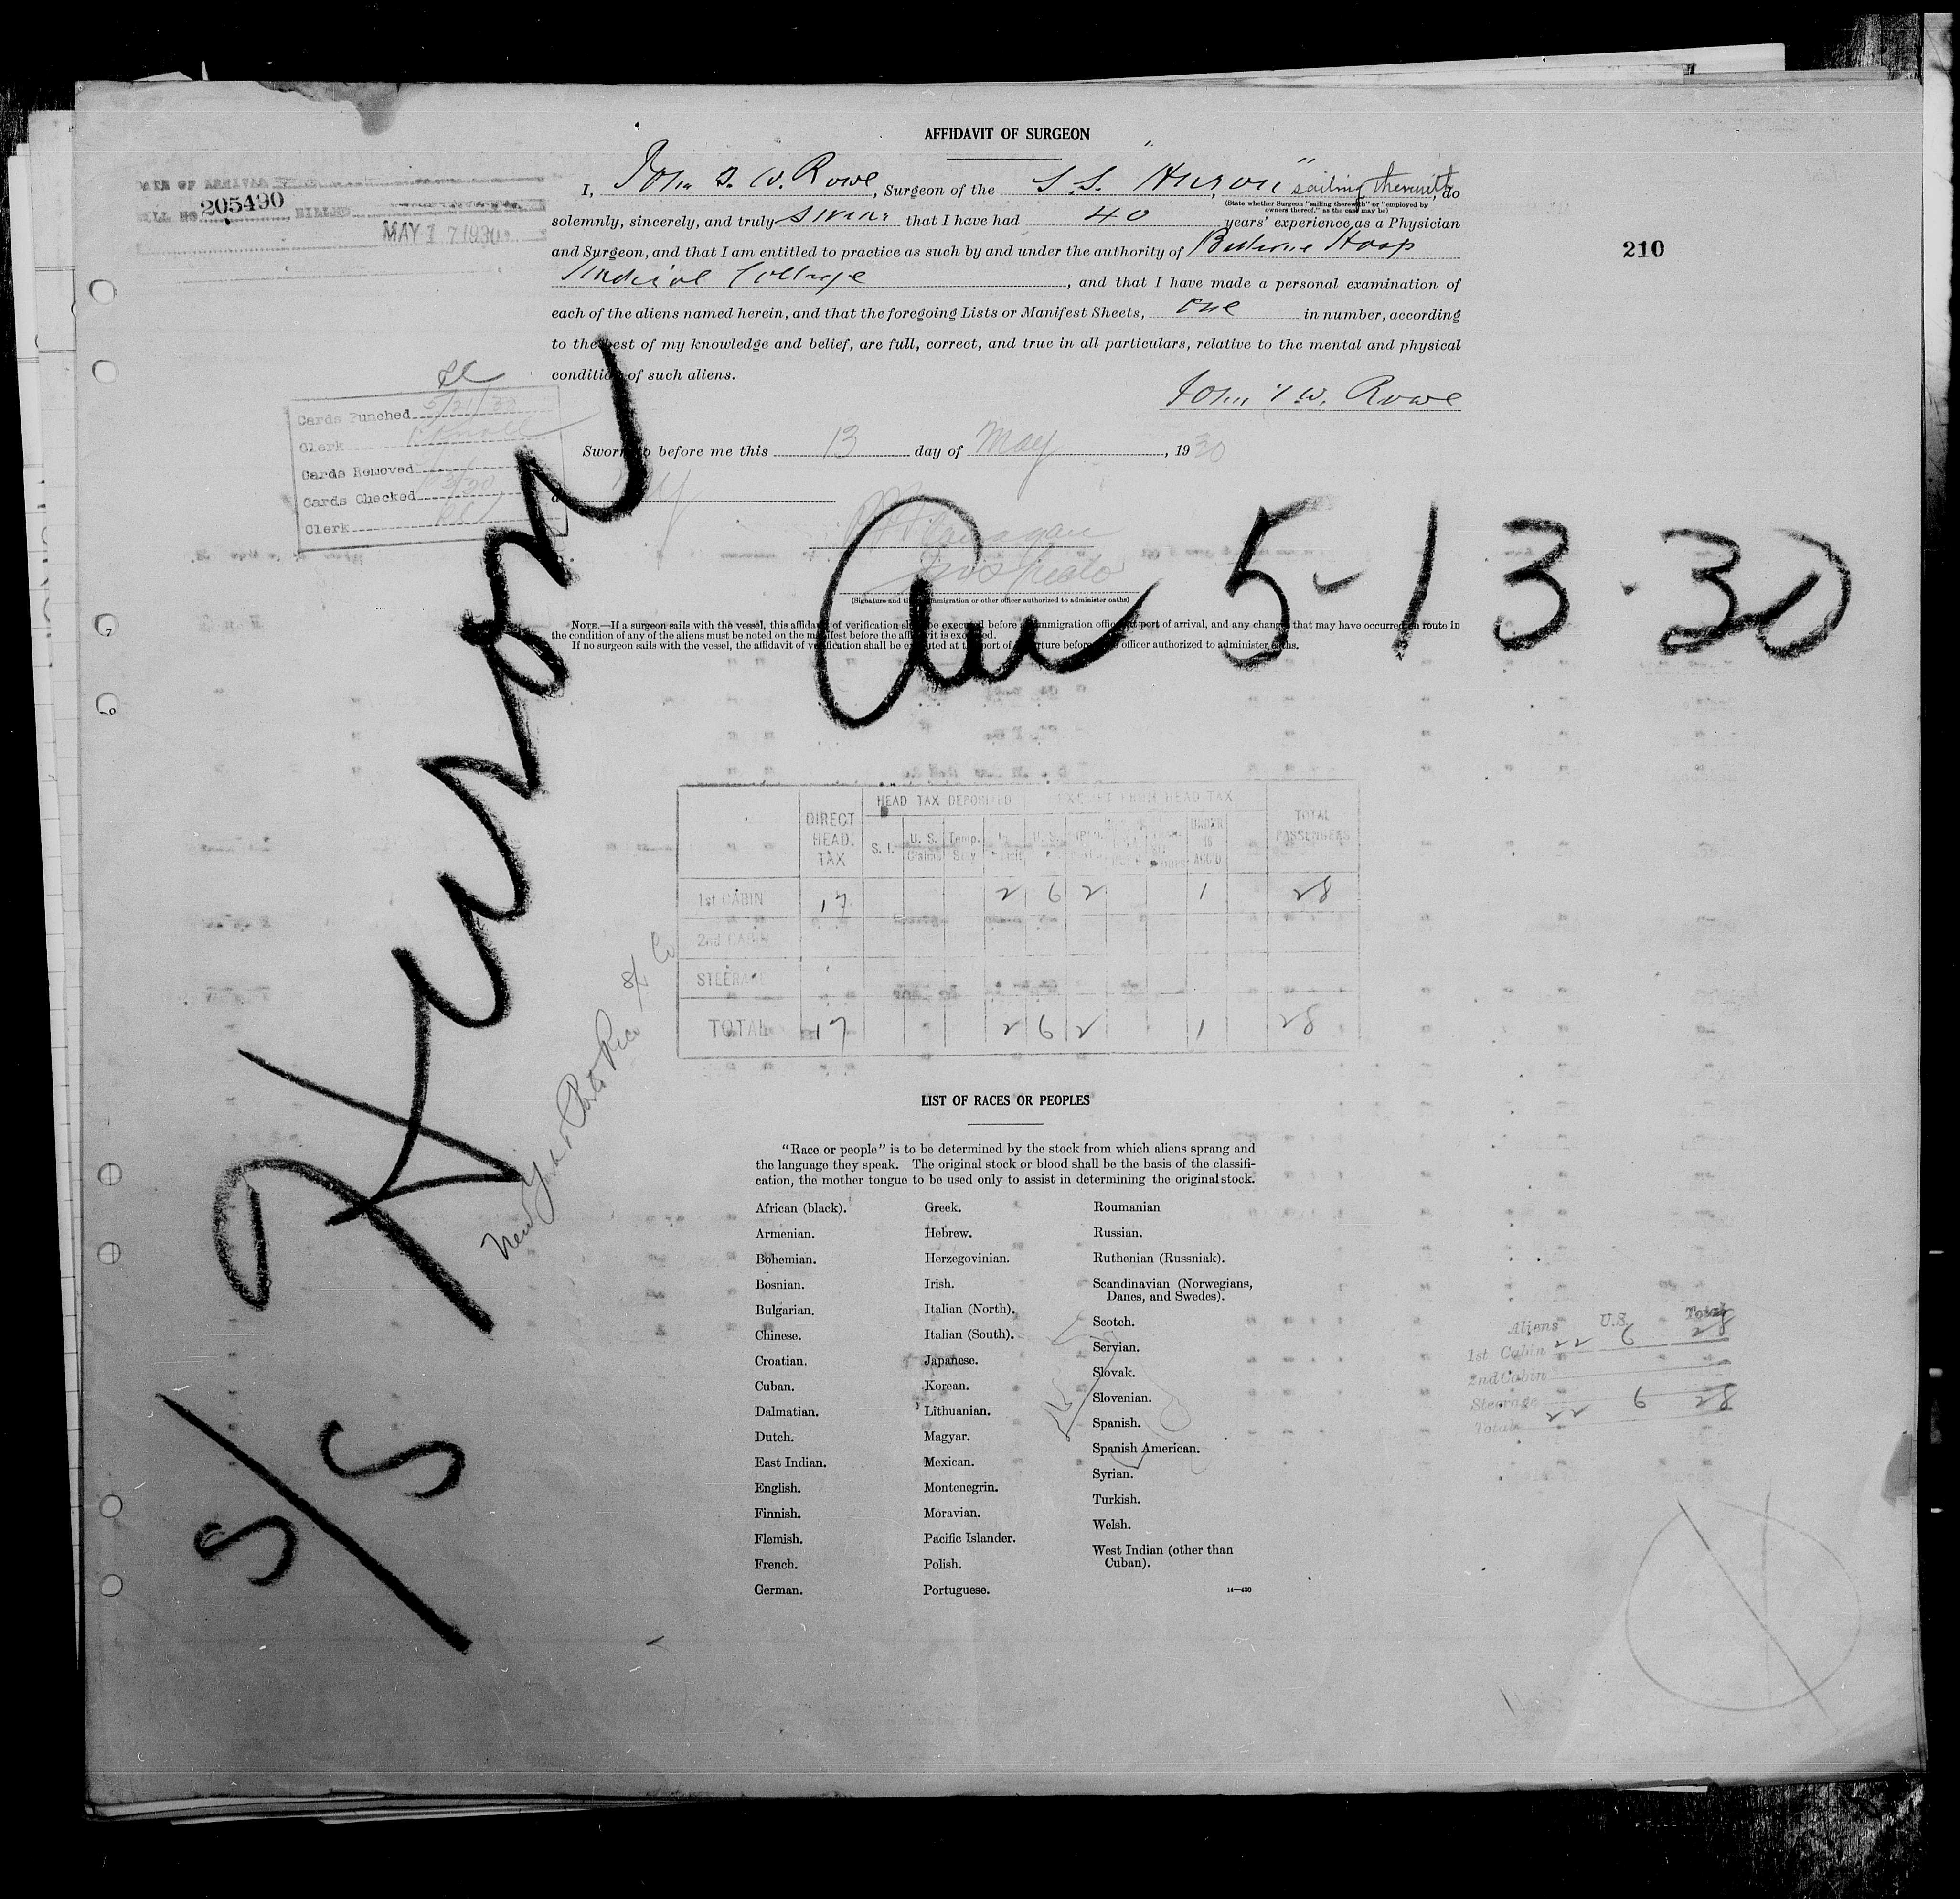 AFFIDAVIT OF SURGEON
DATE OF ARRIVAL
BILL NO. 205490, BILLED
MAY 17 1930
210
I, John D. W. Rowe, Surgeon of the S.S. "Huron", sailing therewith, do
(State whether Surgeon "sailing therewith" or "employed by
owners thereof," as the case may be)
solemnly, sincerely, and truly swear that I have had 40 years' experience as a Physician
and Surgeon, and that I am entitled to practice as such by and under the authority of Hosp
College, and that I have made a personal examination of
each of the aliens named herein, and that the foregoing Lists or Manifest Sheets, one in number, according
to the best of my knowledge and belief, are full, correct, and true in all particulars, relative to the mental and physical
condition of such aliens.
John W. Rowe
Cards Punched 5/21/30
Clerk
Cards Removed
Cards Checked
Clerk
Sworn to before me this 13 day of May, 1930
at NY
Flanagan
(Signature and title immigration or other officer authorized to administer oaths)
NOTE.—If a surgeon sails with the vessel, this affidavit of verification shall be executed before an immigration officer at port of arrival, and any change that may have occurred en route in
the condition of any of the aliens must be noted on the manifest before the affidavit is executed.
If no surgeon sails with the vessel, the affidavit of verification shall be executed at the port of departure before officer authorized to administer oaths.
S/S Huron
Arr 5-13-30
New York & Porto Rico S/S Co
HEAD TAX DEPOSITED EXEMPT FROM HEAD TAX
DIRECT HEAD TAX S. I. U. S. Claims Temp. Stay U. S. UNDER 16 ACC'D TOTAL PASSENGERS
1st CABIN 17 2 6 2 1 28
2nd CABIN
STEERAGE
TOTAL 17 2 6 2 1 28
LIST OF RACES OR PEOPLES
"Race or people" is to be determined by the stock from which aliens sprang and
the language they speak. The original stock or blood shall be the basis of the classifi-
cation, the mother tongue to be used only to assist in determining the original stock.
African (black).
Armenian.
Bohemian.
Bosnian.
Bulgarian.
Chinese.
Croatian.
Cuban.
Dalmatian.
Dutch.
East Indian.
English.
Finnish.
Flemish.
French.
German.
Greek.
Hebrew.
Herzegovinian.
Irish.
Italian (North).
Italian (South).
Japanese.
Korean.
Lithuanian.
Magyar.
Mexican.
Montenegrin.
Moravian.
Pacific Islander.
Polish.
Portuguese.
Roumanian
Russian.
Ruthenian (Russniak).
Scandinavian (Norwegians,
Danes, and Swedes).
Scotch.
Servian.
Slovak.
Slovenian.
Spanish.
Spanish American.
Syrian.
Turkish.
Welsh.
West Indian (other than
Cuban).
14—430
Aliens U.S. Total
1st Cabin 22 6 28
2nd Cabin
Steerage
Total 22 6 28